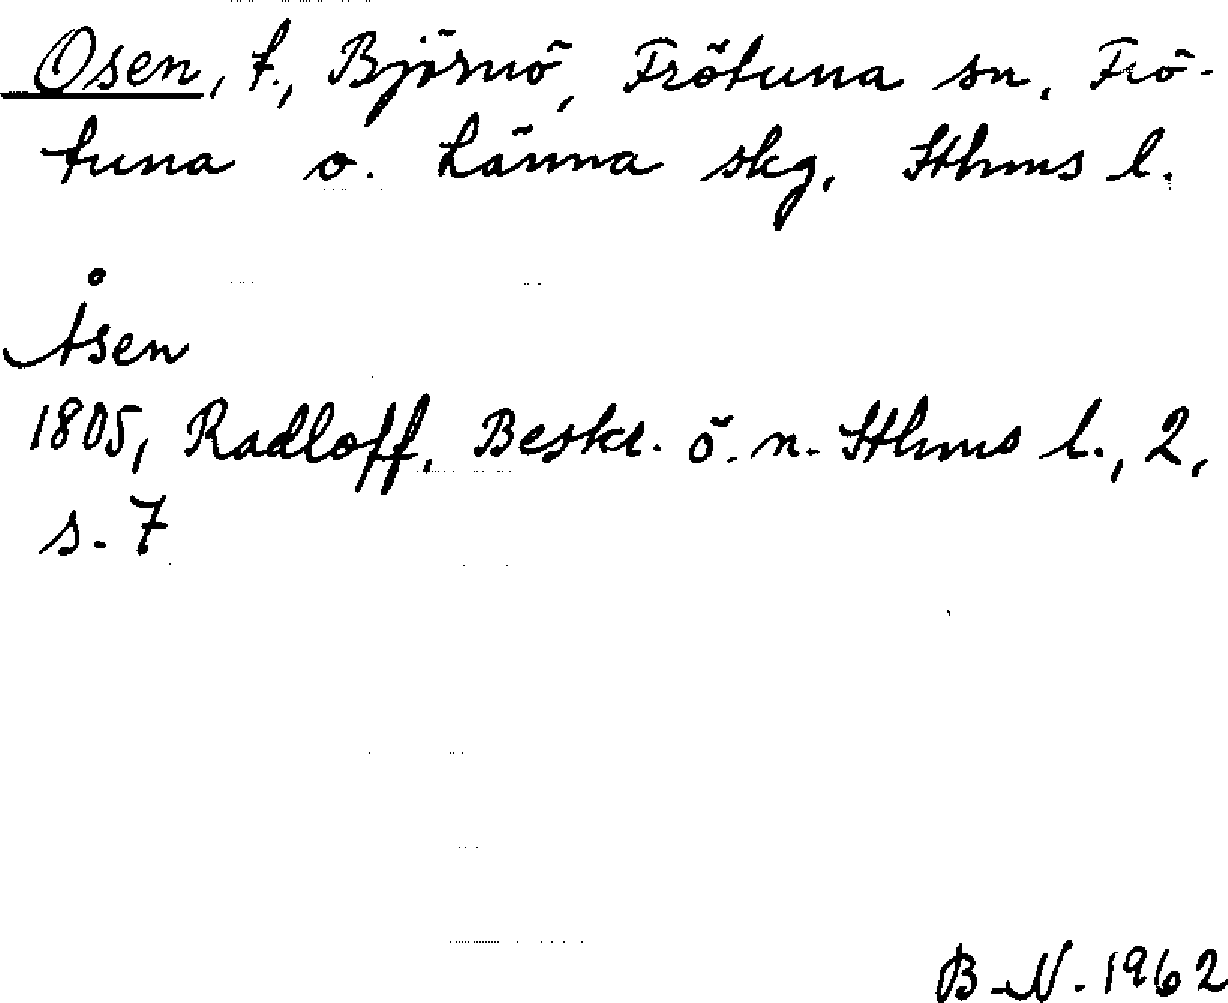 Osen, t., Björnö, Frötuna sn, Frö-
tuna o. Länna skg, Sthms l.
Åsen
1805, Radloff, Beskr. ö. n. Sthms l., 2,
s. 7
B-N. 1962